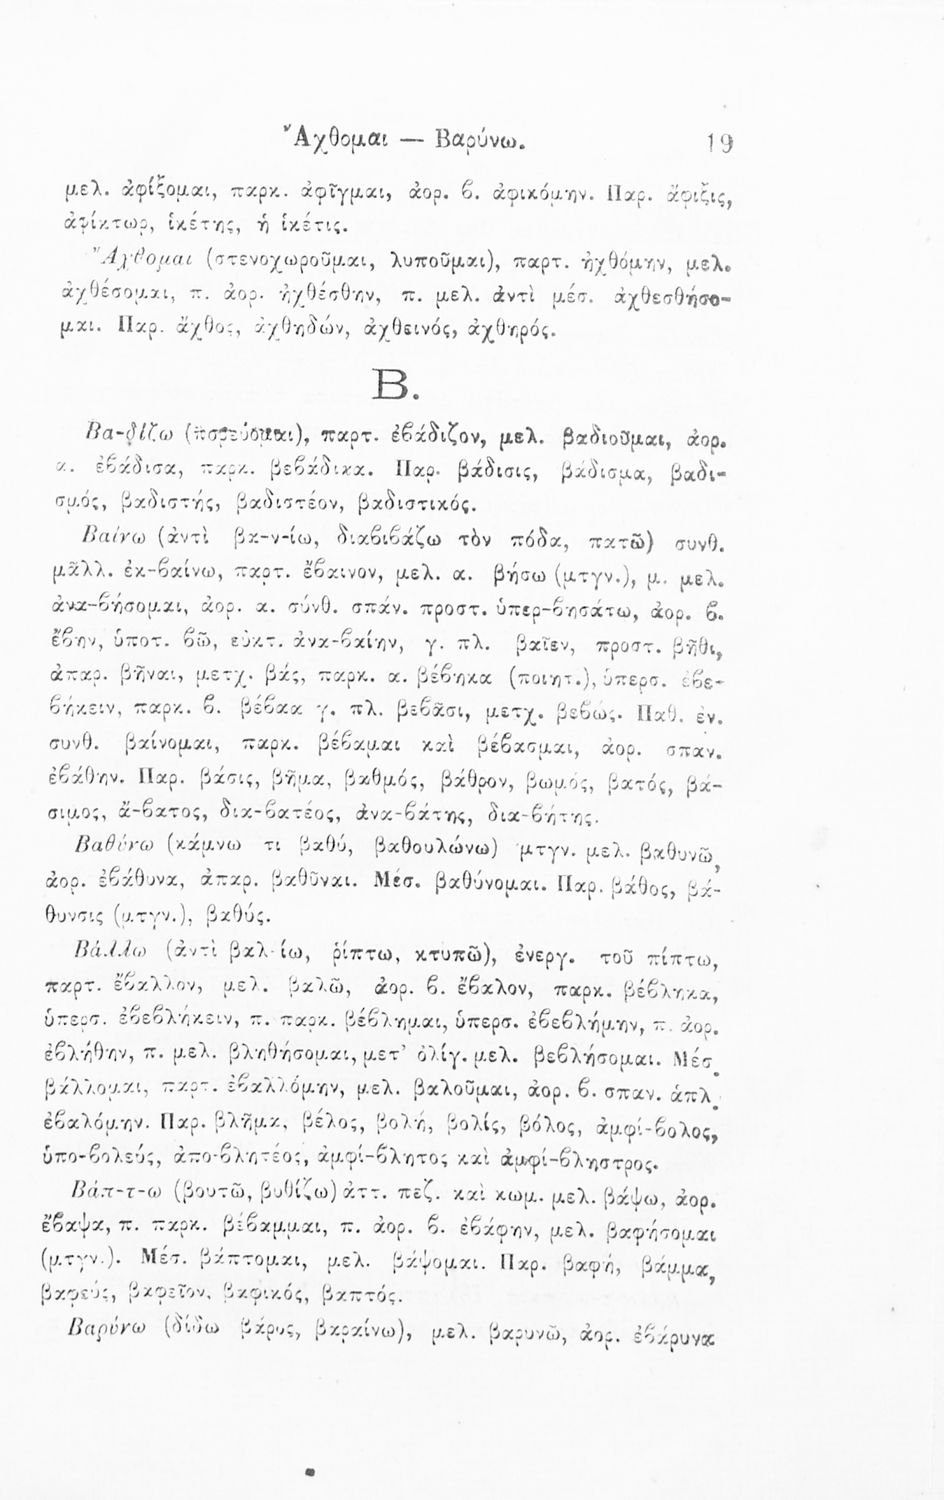 Ἄχθομαι — Βαρύνω. 19
μελ. ἀφίξομαι, παρκ. ἀφῖγμαι, ἀορ. ϐ. ἀφικόμην. Παρ. ἄφιξις,
ἀφίκτωρ, ἱκέτης, ἡ ἱκέτις.
Ἄχθομαι (στενοχωροῦμαι, λυποῦμαι), παρτ. ἠχθόμην, μελ.
ἀχθέσομαι, π. ἀορ. ἠχθέσθην, π. μελ. ἀντὶ μέσ. ἀχθεσθήσο-
μαι. Παρ. ἄχθος, ἀχθηδών, ἀχθεινός, ἀχθηρός.
Β.
Βα-δίζω (πορεύομαι), παρτ. ἐϐάδιζον, μελ. βαδιοῦμαι, ἀορ.
α. ἐϐάδισα, παρκ. βεϐάδικα. Παρ. βάδισις, βάδισμα, βαδι-
σμός, βαδιστής, βαδιστέον, βαδιστικός.
Βαίνω (ἀντὶ βα-ν-ίω, διαϐιϐάζω τὸν πόδα, πατῶ) συνθ.
μᾶλλ. ἐκ-ϐαίνω, παρτ. ἔϐαινον, μελ. α. βήσω (μτγν.), μ. μελ.
ἀνα-ϐήσομαι, ἀορ. α. σύνθ. σπάν. προστ. ὑπερ-ϐησάτω, ἀορ. ϐ.
ἔϐην, ὑποτ. ϐῶ, εὐκτ. ἀνα-ϐαίην, γ. πλ. βαῖεν, προστ. βῆθι,
ἀπαρ. βῆναι, μετχ. βάς, παρκ. α. βέϐηκα (ποιητ.), ὑπερσ. ἐϐε-
ϐήκειν, παρκ. ϐ. βέϐαα γ. πλ. βεϐᾶσι, μετχ. βεϐώς. Παθ. ἐν.
συνθ. βαίνομαι, παρκ. βέϐαμαι καὶ βέϐασμαι, ἀορ. σπαν.
ἐϐάθην. Παρ. βάσις, βῆμα, βαθμός, βάθρον, βωμός, βατός, βά-
σιμος, ἄ-ϐατος, δια-ϐατέος, ἀνα-ϐάτης, δια-ϐήτης.
Βαθύνω (κάμνω τι βαθύ, βαθουλώνω) μτγν. μελ. βαθυνῶ,
ἀορ. ἐϐάθυνα, ἀπαρ. βαθῦναι. Μέσ. βαθύνομαι. Παρ. βάθος, βά-
θυνσις (μτγν.), βαθύς.
Βάλλω (ἀντὶ βαλ-ίω, ῥίπτω, κτυπῶ), ἐνεργ. τοῦ πίπτω,
παρτ. ἔϐαλλον, μελ. βαλῶ, ἀορ. ϐ. ἔϐαλον, παρκ. βέϐληκα,
ὑπερσ. ἐϐεϐλήκειν, π. παρκ. βέϐλημαι, ὑπερσ. ἐϐεϐλήμην, π. ἀορ.
ἐϐλήθην, π. μελ. βληθήσομαι, μετ’ ὀλίγ. μελ. βεϐλήσομαι. Μέσ.
βάλλομαι, παρτ. ἐϐαλλόμην, μελ. βαλοῦμαι, ἀορ. ϐ. σπαν. ἁπλ.
ἐϐαλόμην. Παρ. βλῆμα, βέλος, βολή, βολίς, βόλος, ἀμφί-ϐολος,
ὑπο-ϐολεύς, ἀπο-ϐλητέος, ἀμφί-ϐλητος καὶ ἀμφί-ϐληστρος.
Βάπ-τ-ω (βουτῶ, βυθίζω) ἀττ. πεζ. καὶ κωμ. μελ. βάψω, ἀορ.
ἔϐαψα, π. παρκ. βέϐαμμαι, π. ἀορ. ϐ. ἐϐάφην, μελ. βαφήσομαι
(μτγν.). Μέσ. βάπτομαι, μελ. βάψομαι. Παρ. βαφή, βάμμα,
βαφεύς, βαφεῖον, βαφικός, βαπτός.
Βαρύνω (δίδω βάρος, βαραίνω), μελ. βαρυνῶ, ἀορ. ἐϐάρυνα